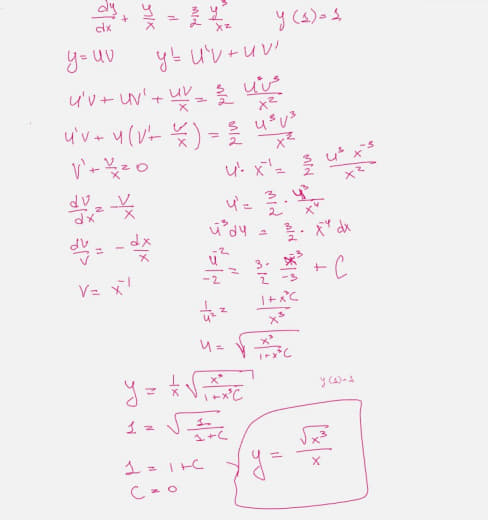 dy/dx + y/x = 3/2 y³/x²   y(1)=1
y=uv   y'=u'v+uv'
u'v+uv'+uv/x=3/2 u³v³/x²
u'v+u(v'-v/x)=3/2 u³v³/x²
v'+v/x=0
dv/dx=-v/x
dv/v=-dx/x
v=x⁻¹
u'·x⁻¹=3/2 u³x⁻³/x²
u'=3/2·u³/x⁴
u⁻³du=3/2·x⁻⁴dx
u⁻²/-2=3/2·x⁻³/-3+C
1/u²=1+x³C/x³
u=√(x³/1+x³C)
y=1/x√(x³/1+x³C)   y(1)=1
1=√(1/1+C)
1=1+C
C=0
y=√x³/x